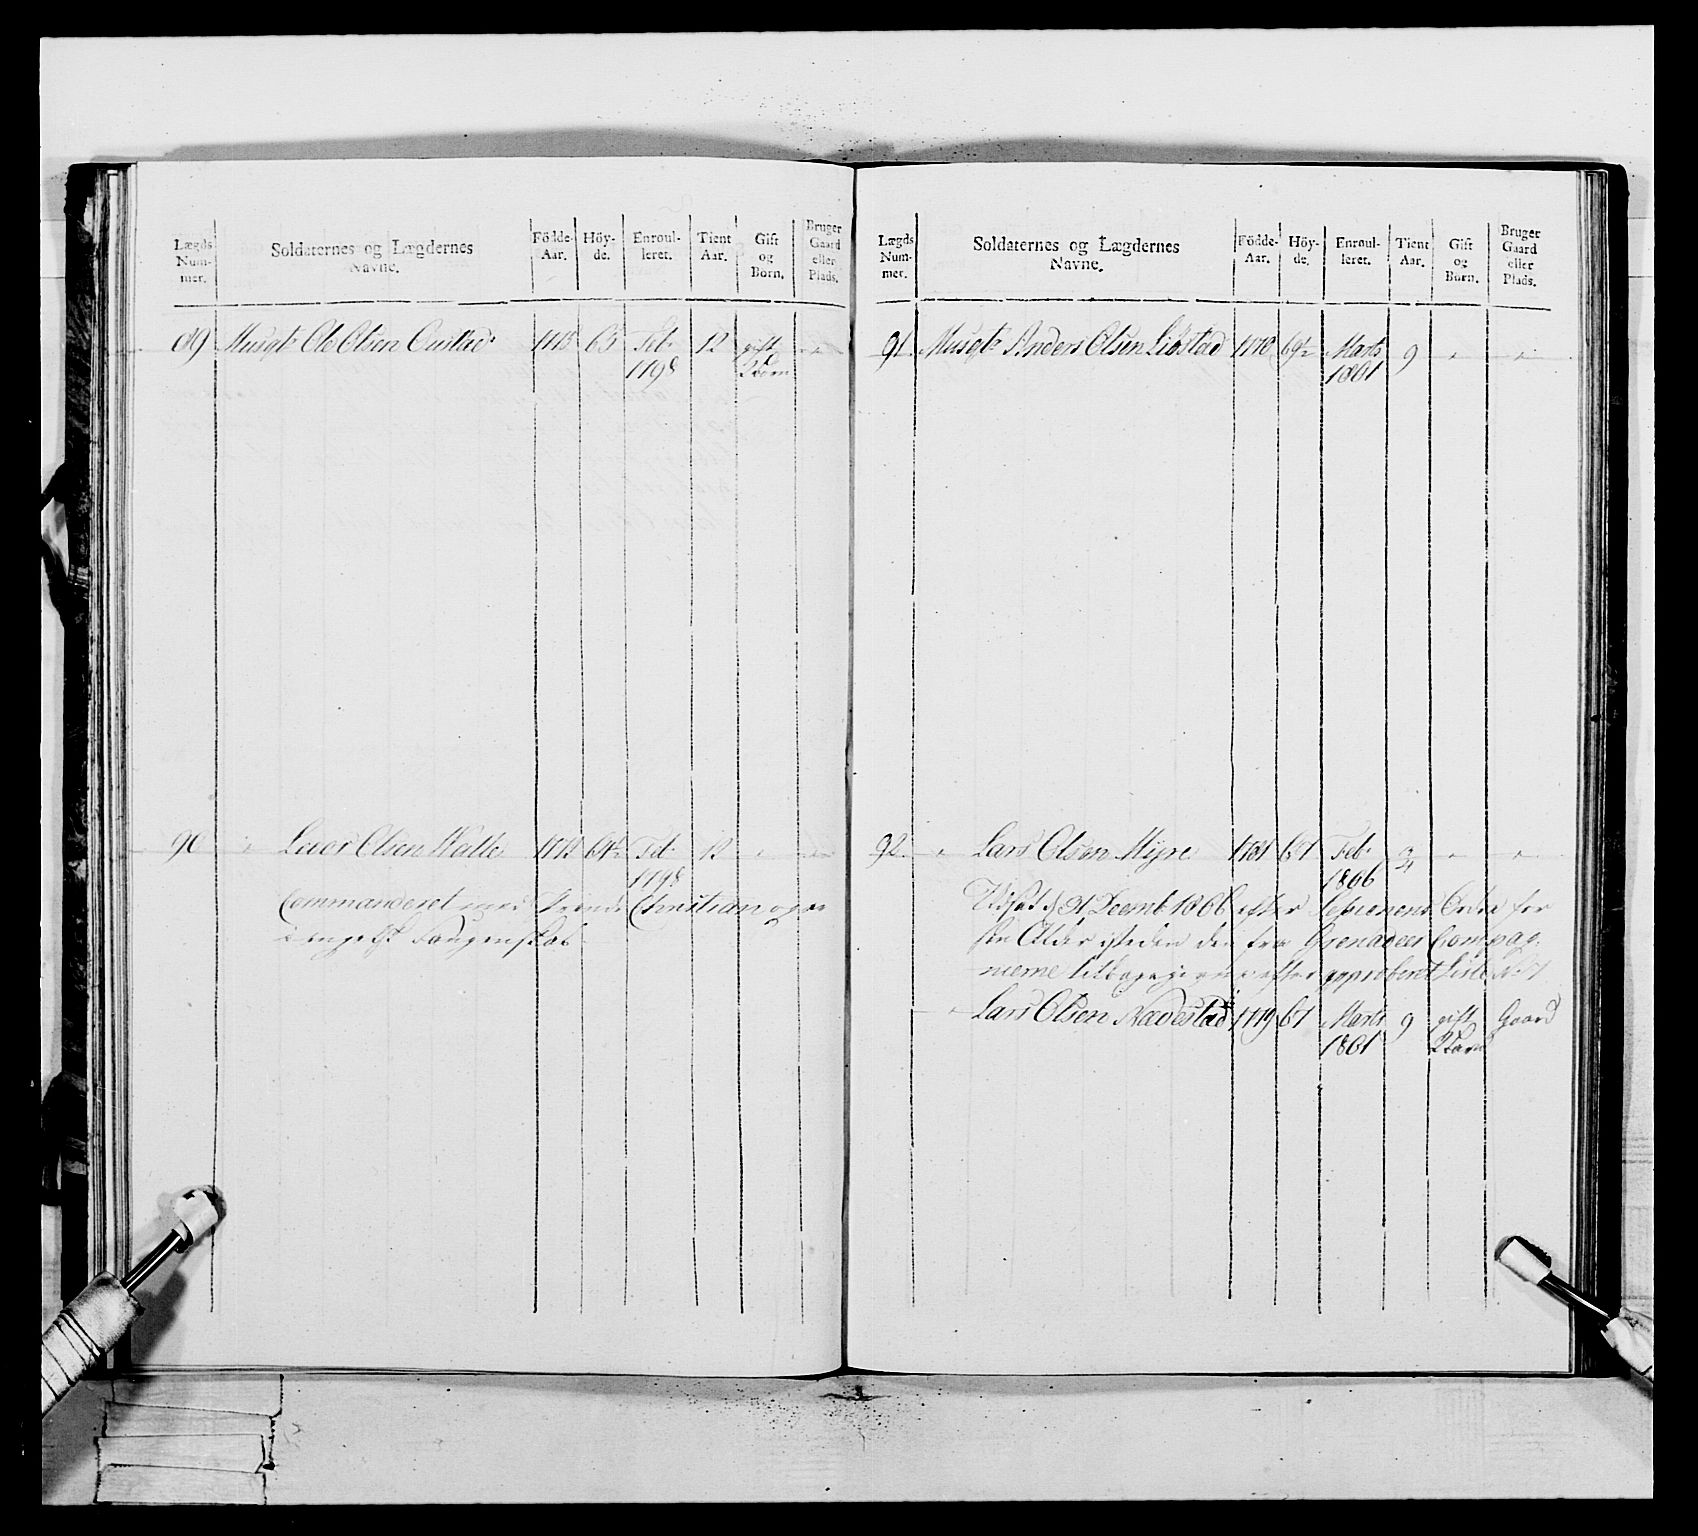 Lægds Num- mer. Soldaternes og Lægdernes Navne. Födde- Aar. Höy- de. Enroul- leret. Tient Aar. Gift og Börn. Bruger Gaard eller Plads.
89 Musqt: Ole Olsen 1775 65 Feb: 12 gift
1798 2 Börn
90 " Laers Olsen Walle 64½ Feb: 12 " "
1798
Commanderet med Prinds Christian og i
Engelsk Fangenskab
Lægds Num- mer. Soldaternes og Lægdernes Navne. Födde- Aar. Höy- de. Enroul- leret. Tient Aar. Gift og Börn. Bruger Gaard eller Plads.
91 Musqt: Anders Olsen Liøstad 1778 69½ Marts 9 " "
1801
92 " Lars Olsen Myre 1781 67 Feb: 4 " "
1806
d 31 Decemb: 1806 efter Sessionens Ordre for
sin Alder isteden den fra Grenadeer Compag-
nierne efter approberet Liste No 7
" Lars Olsen Nædestad 1779 67 Marts 9 gift Gaard
1801 2 Barn